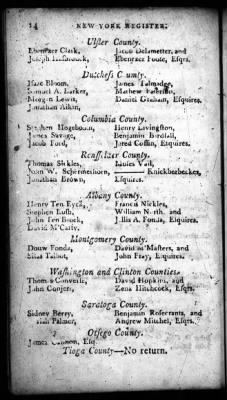 14 NEW YORK REGISTER.
Ulster County.
Ebenezer Clark, Jacob Delametter, and
Joseph Hasbrouck, Ebenezer Foote, Esqrs.
Dutchess County.
Isaac Bloom, James Talmadge,
Samuel A. Barker, Mathew Paterson,
Morgan Lewis, Daniel Graham, Esquires.
Jonathan Aikin,
Columbia County.
Stephen Hogeboom, Henry Livingston,
James Savage, Benjamin Birdsall,
Jacob Ford, Jared Coffin, Esquires.
Rensselaer County.
Thomas Sickles, Moses Vail,
John W. Schermerhorn, ——— Knickerbocker,
Jonathan Brown, Esquires.
Albany County.
Henry Ten Eyck, Francis Nicoles,
Stephen Lush, William North, and
John Ten Broeck, Jillis A. Fonda, Esquires.
David M'Carty.
Montgomery County.
Douw Fonda, David M'Masters, and
Silas Talbot, John Fray, Esquires.
Washington and Clinton Counties.
Thomas Converse, David Hopkins, and
John Conjers, Zena Hitchcock, Esqrs.
Saratoga County.
Sidney Berry, Benjamin Rosecrants, and
Palmer, Andrew Mitchel, Esqrs.
Otsego County.
James Cannon, Esq.
Tioga County—No return.